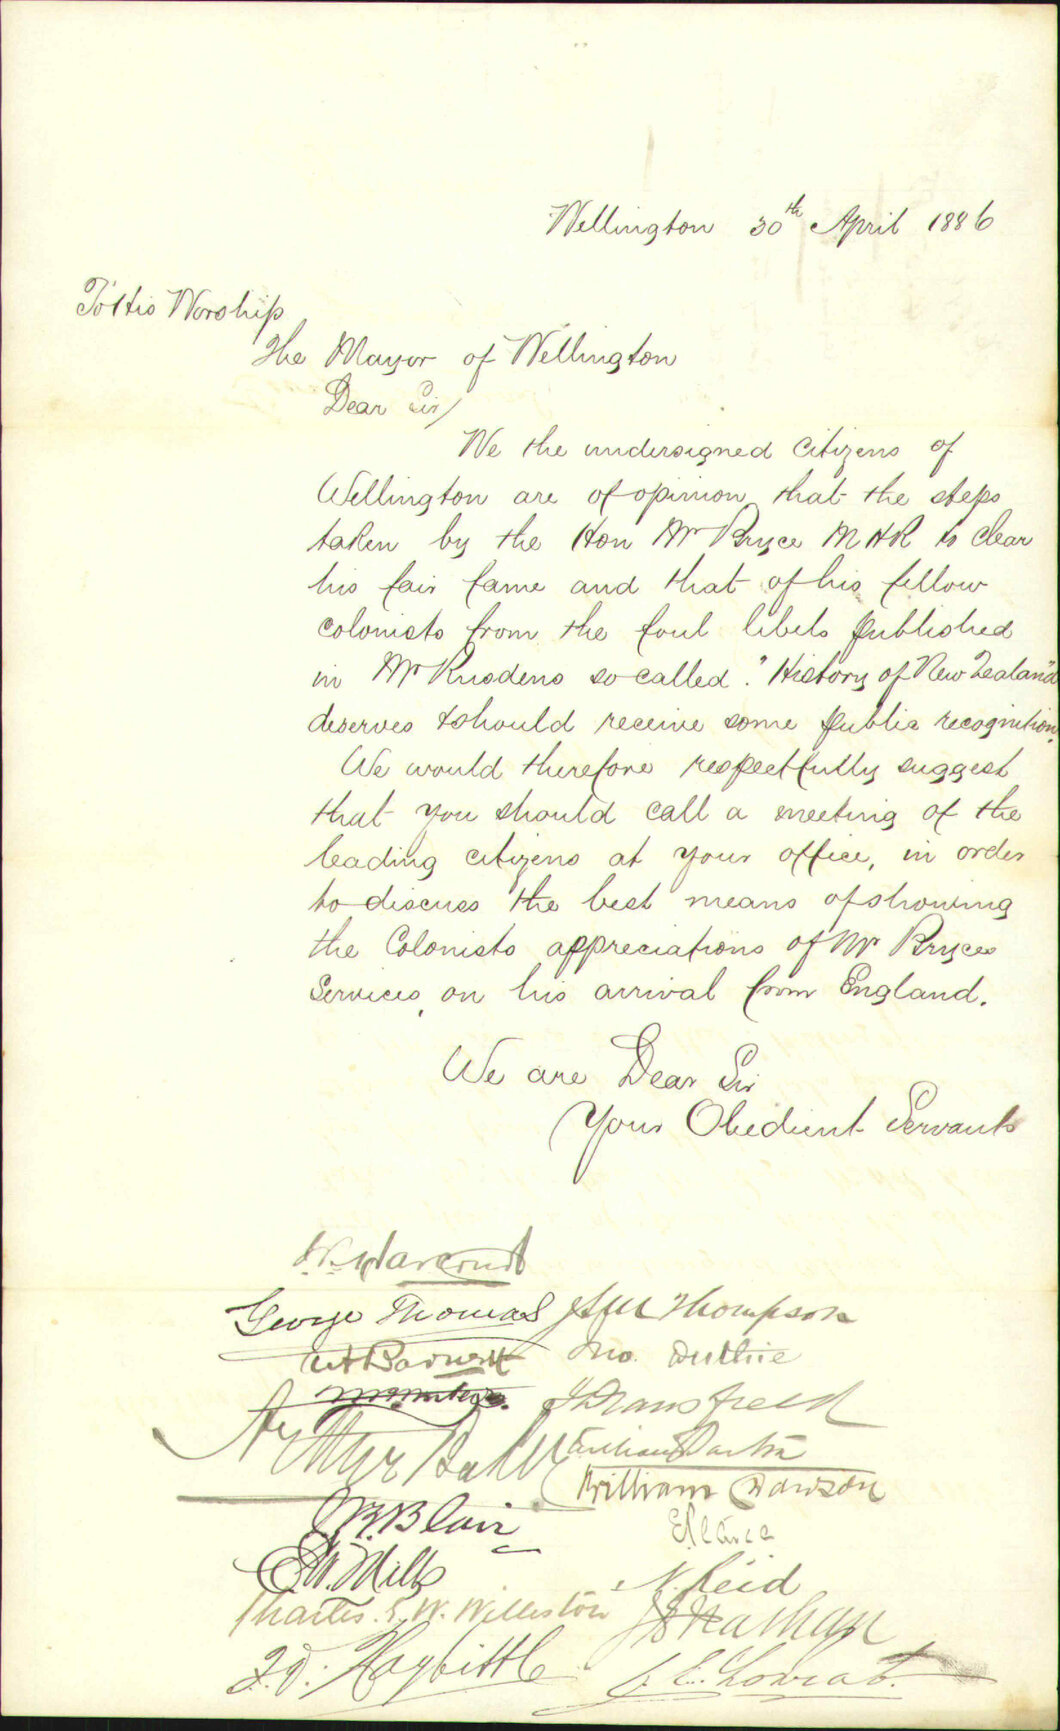 Wellington 30th April 1886
To His Worship
The Mayor of Wellington
Dear Sir/
We the undersigned Citizens of
Wellington are of opinion that the steps
taken by the Hon Mr Bryce MHR to clear
his fair fame and that of his fellow
colonists from the foul libels published
in Mr Rusdens so called "History of New Zealand"
deserves & should receive some public recognition.
We would therefore respectfully suggest
that you should call a meeting of the
leading citizens at your office, in order
to discuss the best means of showing
the Colonists appreciations of Mr Bryces
Services, on his arrival from England.
We are Dear Sir
Your Obedient Servants
W. Harcourt
George Thomas
Thompson
Barnett
Jno. Duthie
J Dransfield
Arthur Baker
William Dawson
J.R. Blair
E.W. Mills
N. Reid
Charles E. W. Willeston
Nathan
J.D. Haybittle